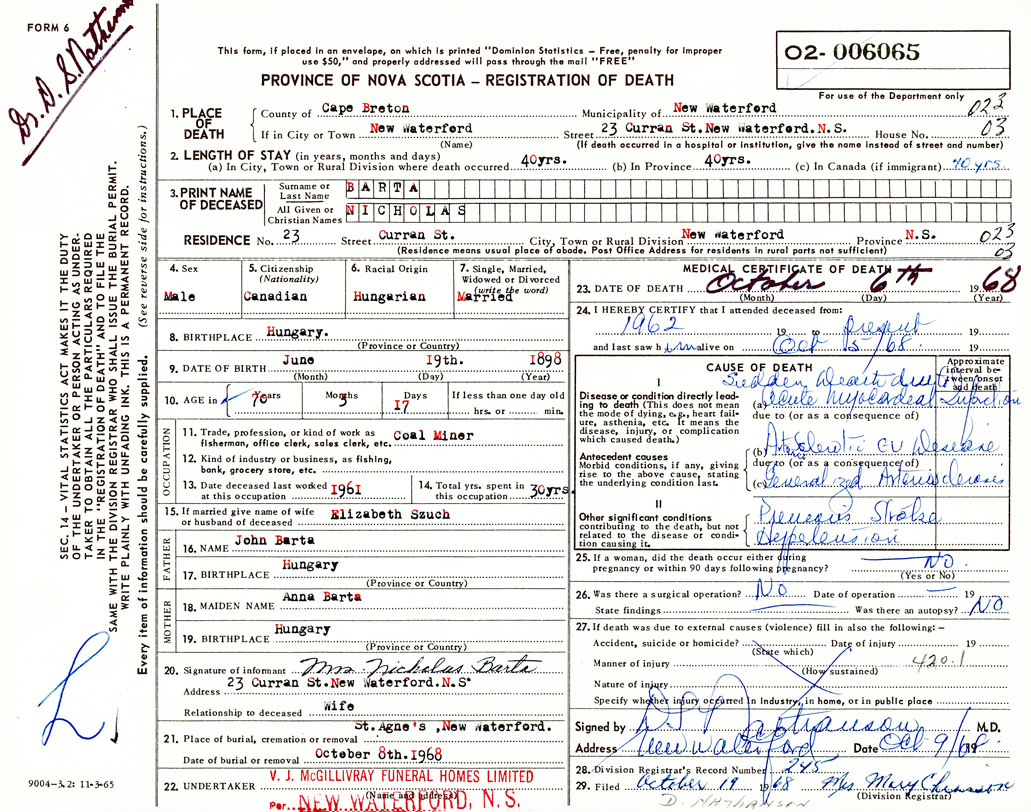 FORM 6
Dr. D. S. Nathanson
This form, if placed in an envelope, on which is printed "Dominion Statistics – Free, penalty for improper
use $50," and properly addressed will pass through the mail "FREE"
PROVINCE OF NOVA SCOTIA – REGISTRATION OF DEATH
02- 006065
For use of the Department only
SEC. 14 – VITAL STATISTICS ACT MAKES IT THE DUTY
OF THE UNDERTAKER OR PERSON ACTING AS UNDER-
TAKER TO OBTAIN ALL THE PARTICULARS REQUIRED
IN THE "REGISTRATION OF DEATH" AND TO FILE THE
SAME WITH THE DIVISION REGISTRAR WHO SHALL ISSUE THE BURIAL PERMIT.
WRITE PLAINLY WITH UNFADING INK. THIS IS A PERMANENT RECORD.
Every item of information should be carefully supplied. (See reverse side for instructions.)
1. PLACE OF DEATH County of Cape Breton Municipality of New Waterford 023
If in City or Town New Waterford Street 23 Curran St.New Waterford.N.S. House No. 03
(Name) (If death occurred in a hospital or institution, give the name instead of street and number)
2. LENGTH OF STAY (in years, months and days)
(a) In City, Town or Rural Division where death occurred 40yrs. (b) In Province 40yrs. (c) In Canada (if immigrant) 40 yrs.
3. PRINT NAME OF DECEASED Surname or Last Name BARTA
All Given or Christian Names NICHOLAS
RESIDENCE No. 23 Street Curran St. City, Town or Rural Division New Waterford Province N.S. 023
(Residence means usual place of abode. Post Office Address for residents in rural parts not sufficient) 03
4. Sex Male
5. Citizenship (Nationality) Canadian
6. Racial Origin Hungarian
7. Single, Married, Widowed or Divorced (write the word) Married
8. BIRTHPLACE Hungary.
(Province or Country)
9. DATE OF BIRTH June 19th. 1898
(Month) (Day) (Year)
10. AGE in 70 Years 3 Months 17 Days If less than one day old
hrs. or min.
OCCUPATION
11. Trade, profession, or kind of work as
fisherman, office clerk, sales clerk, etc. Coal Miner
12. Kind of industry or business, as fishing,
bank, grocery store, etc.
13. Date deceased last worked at this occupation 1961
14. Total yrs. spent in this occupation 30yrs.
15. If married give name of wife or husband of deceased Elizabeth Szuch
FATHER
16. NAME John Barta
17. BIRTHPLACE Hungary
(Province or Country)
MOTHER
18. MAIDEN NAME Anna Barta
19. BIRTHPLACE Hungary
(Province or Country)
20. Signature of informant Mrs. Nickolas Barta
Address 23 Curran St.New Waterford.N.S.
Relationship to deceased Wife
21. Place of burial, cremation or removal St.Agne's ,New Waterford.
Date of burial or removal October 8th.1968
22. UNDERTAKER V. J. McGILLIVRAY FUNERAL HOMES LIMITED
(Name and address)
Per NEW WATERFORD, N. S.
9004-3.2: 11-3-65
MEDICAL CERTIFICATE OF DEATH
23. DATE OF DEATH October 6th 1968
(Month) (Day) (Year)
24. I HEREBY CERTIFY that I attended deceased from:
1962 19 to Present 19
and last saw him alive on Oct 5/68. 19
CAUSE OF DEATH
Approximate interval between onset and death
I
Sudden Death due to
Disease or condition directly leading to death (This does not mean the mode of dying, e.g., heart failure, asthenia, etc. It means the disease, injury, or complication which caused death.)
(a) Acute Myocardial Infarction
due to (or as a consequence of)
Antecedent causes
Morbid conditions, if any, giving rise to the above cause, stating the underlying condition last.
(b) CV Disease
due to (or as a consequence of)
(c) Generalized Arteriosclerosis
II
Other significant conditions
contributing to the death, but not related to the disease or condition causing it.
Previous Stroke
Hypertension
25. If a woman, did the death occur either during
pregnancy or within 90 days following pregnancy? NO
(Yes or No)
26. Was there a surgical operation? NO Date of operation — 19
State findings Was there an autopsy? NO
27. If death was due to external causes (violence) fill in also the following: –
Accident, suicide or homicide? Date of injury 19
(State which)
Manner of injury 420.1
(How sustained)
Nature of injury
Specify whether injury occurred in Industry, in home, or in public place
Signed by D S Nathanson M.D.
Address New Waterford Date Oct 9/68 19
28. Division Registrar's Record Number 245
29. Filed October 19 1968 Mrs Mary
(Division Registrar)
D. NATHANSON